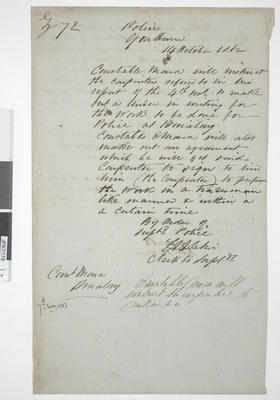 72
Police
Goulburn
14 October 1862
Constable Mara will instruct
the carpenter refered to in his
report of the 4th inst to make
out a tender in writing for
the work to be done for
Police at
Constable O'Mara will also
make out an agreement
which he will get said
Carpenter to sign to bind
him (the Carpenter) to perform
the work in a tradesman
like manner & within a
a certain time
By order of
Supt Police
Clerk to Supt
Const Mara
Constable Mara will
instruct the carpenter to